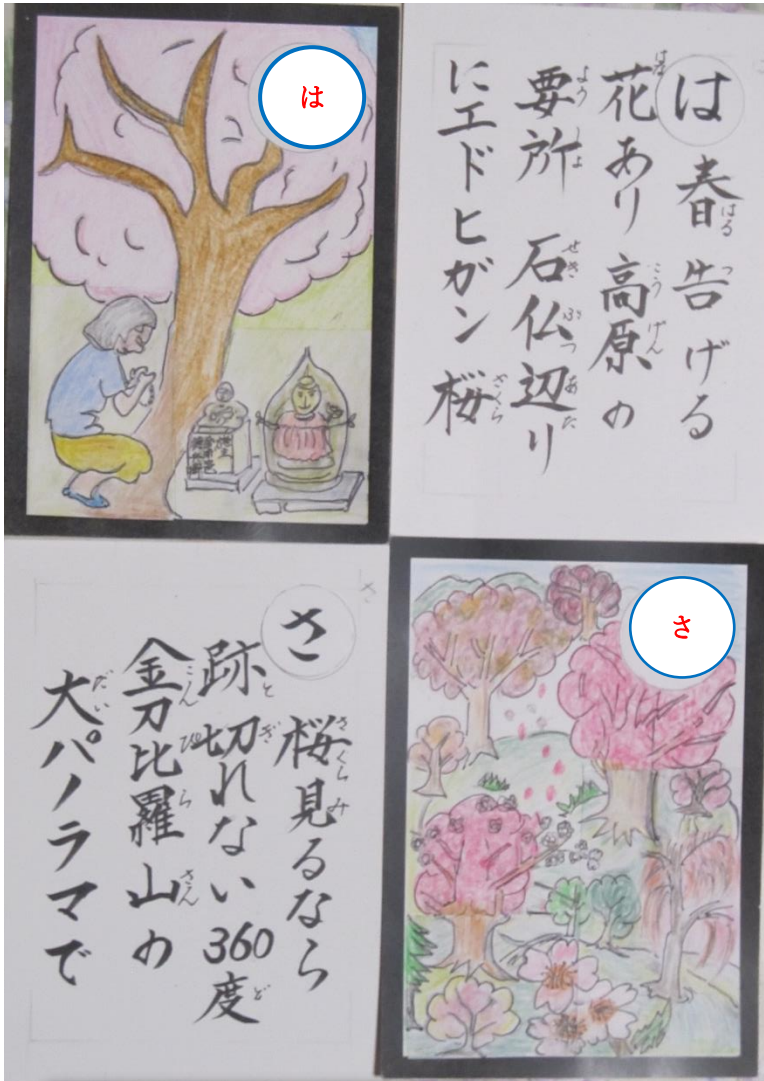 は
は
春告げる
花あり高原の
要所 石仏辺り
にエドヒガン桜
さ
桜見るなら
跡切れない360度
金刀比羅山の
大パノラマで
さ